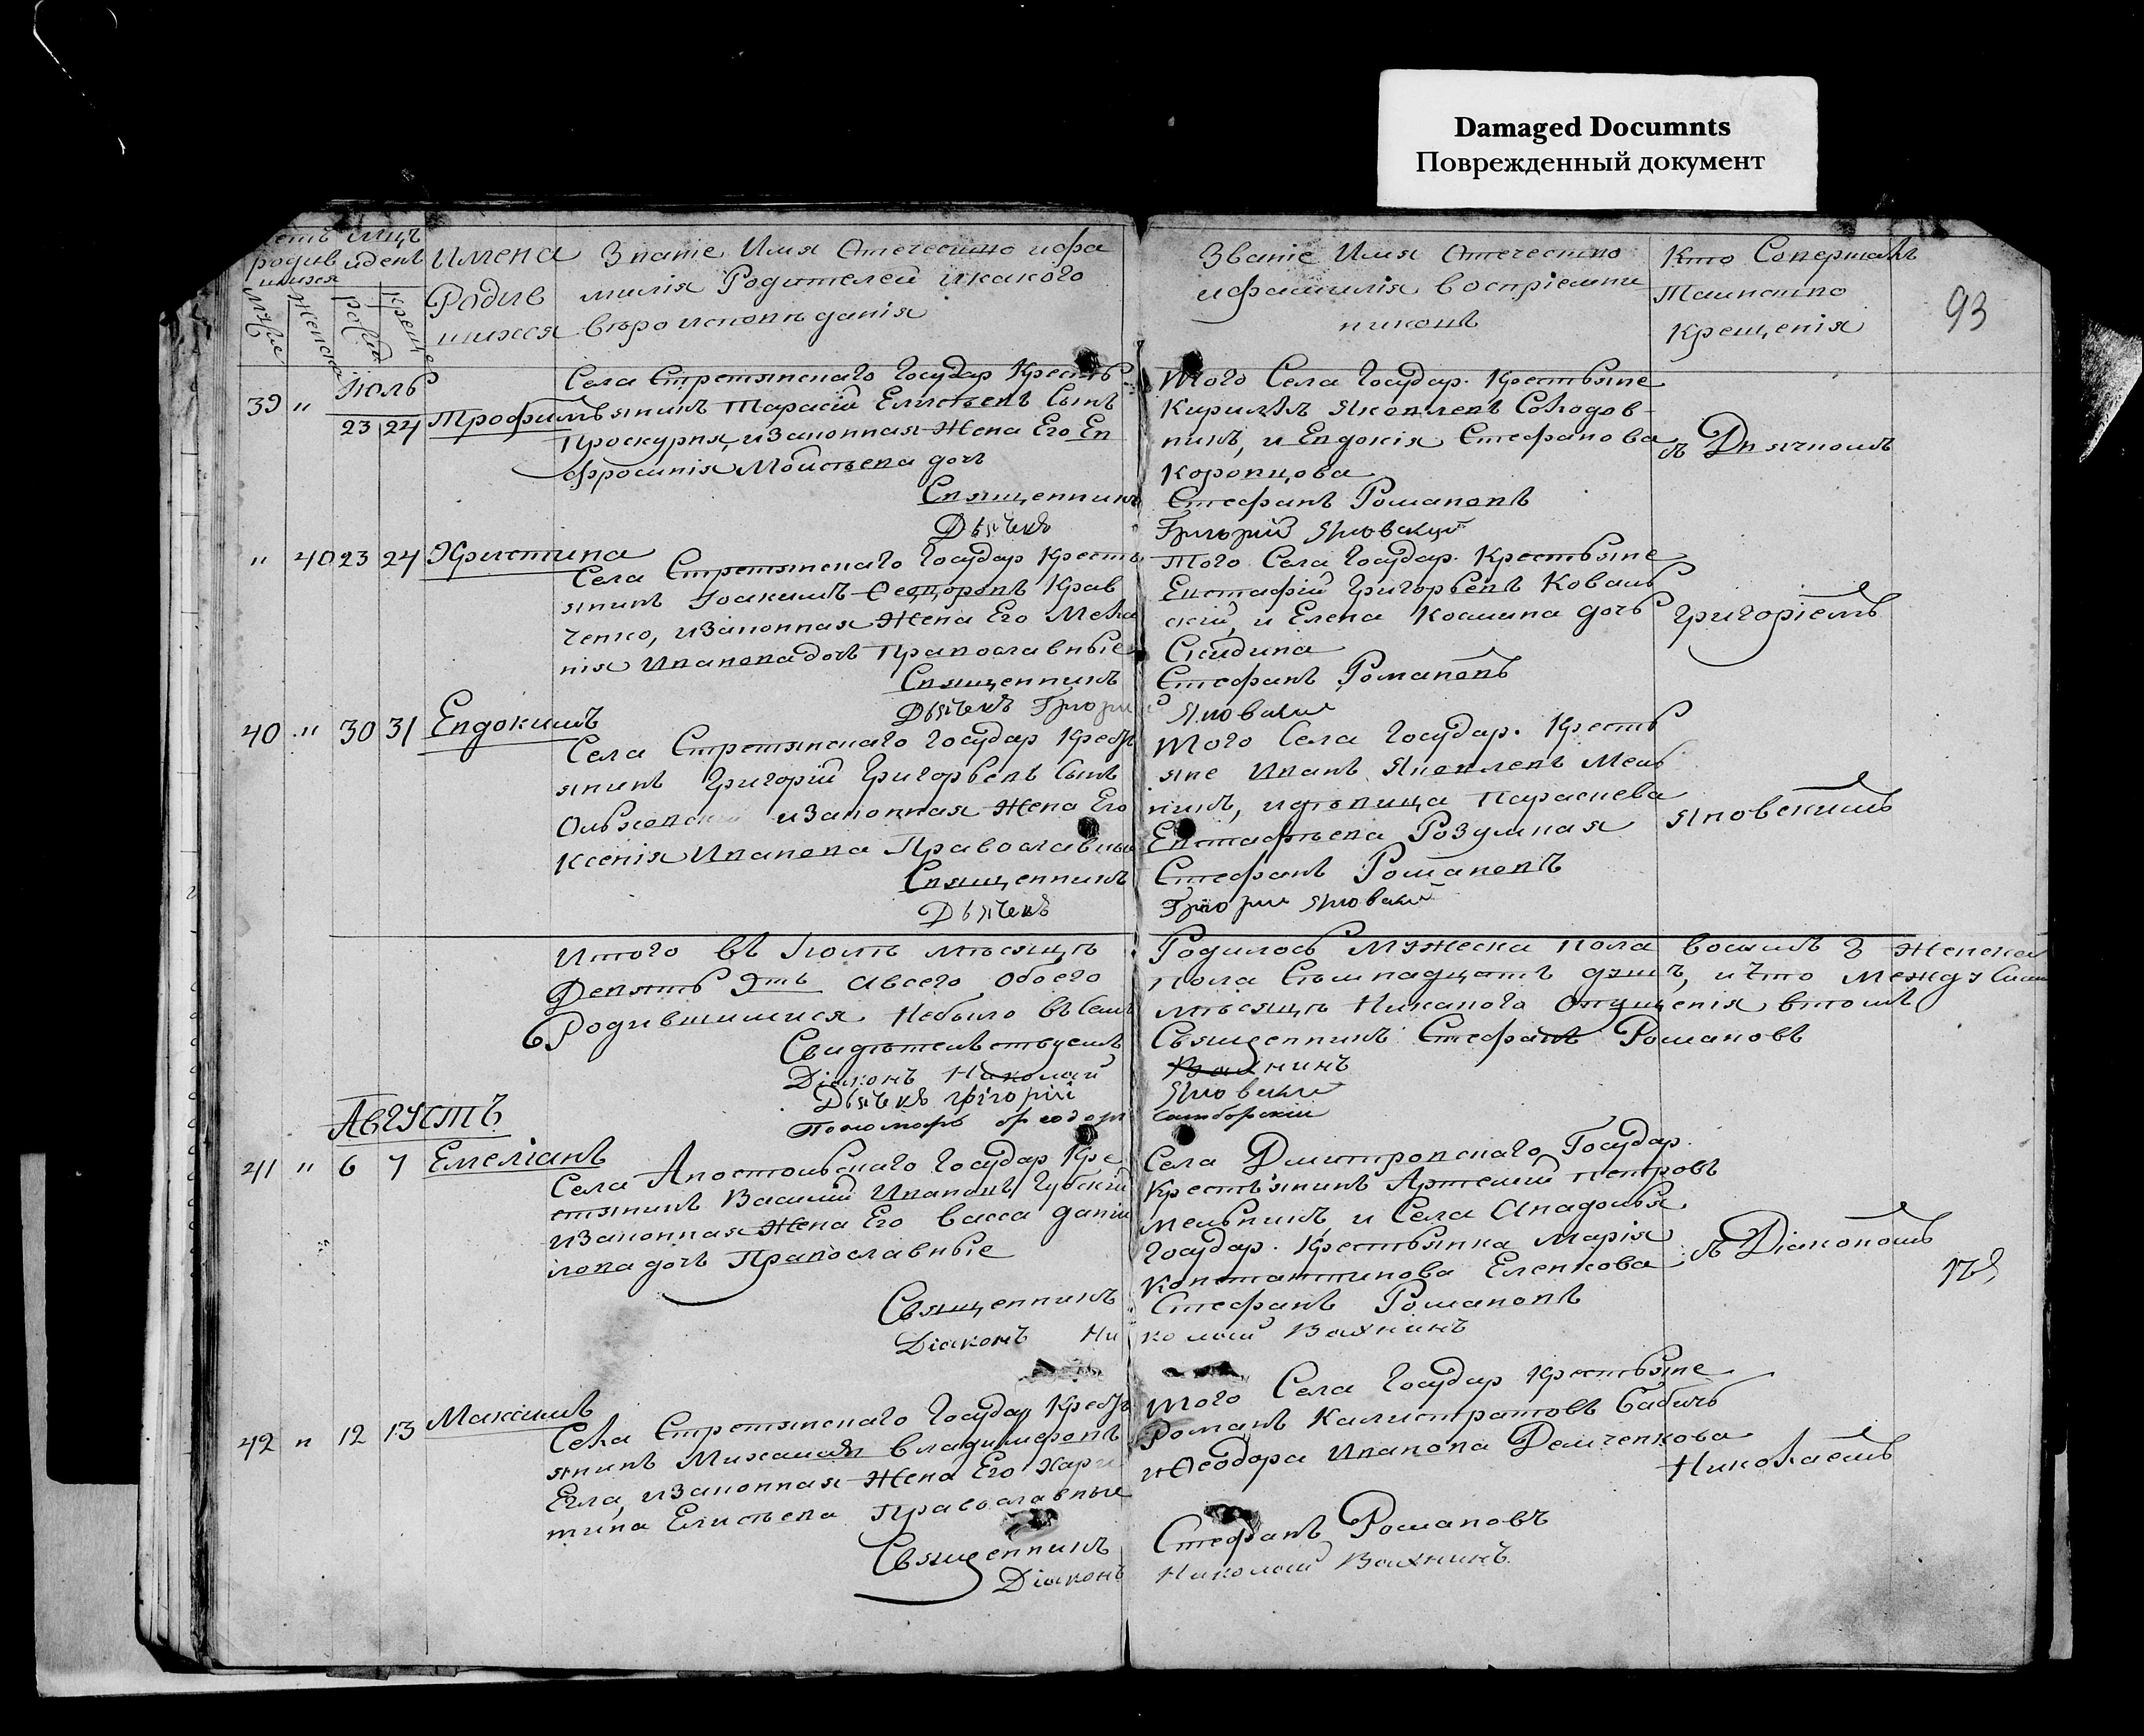 Damaged Documnts
Поврежденный документ
93
родив
шихся
идень
Имена
Родив
шихся
Званіе Имя Отечество ифа
милія Родителей икакого
вѣроисповѣданія
Званіе Имя Отечество
ифамилія воспріемни
никовъ
Кто Совершалъ
Таинство
Крещенія
Іюль
39 " 23 24 Трофимъ
Села Стретинскаго Государ Кресть
янинъ Тарасій Елисѣевъ Сынъ
Проскурня, изаконная Жена Его Ев
фросинія Моисѣева дочь
Священникъ
Дьячекъ
Того Села Государ. Крестьяне
Кирилъ Яковлевъ Солодов
никъ, и Евдокія Стефанова
Коропцова
Стефанъ Романовъ
Григорій Яновскій
ъ Дьячкомъ
" 40 23 24 Христина
Села Стретинскаго Государ Кресть
янинъ Іоакимъ Ѳеодоровъ Крав
ченко, изаконная Жена Его Мела
нія Иванова дочь Православные
Священникъ
Дьячекъ Григорій
Того Села Государ. Крестьяне
Евстафій Григорьевъ Коваль
скій, и Елена Космина дочь
Стефанъ Романовъ
Яновскій
Григоріемъ
40 " 30 31 Евдокимъ
Села Стретинскаго Государ Крест
янинъ Григорій Григорьевъ Сынъ
изаконная Жена Его
Ксенія Иванова Православные
Священникъ
Дьячекъ
Того Села Государ. Кресть
яне Иванъ Яковлевъ Мель
никъ, идовица Параскева
Евстафіева Розумная
Стефанъ Романовъ
Григорій Яновскій
Яновскимъ
Итого въ Іюлѣ мѣсяцѣ
Девять 9ть авсего обоего
Родившимися небыло въ семъ
Свидѣтельствуемъ
Діаконъ Николай
Дьячекъ Григорій
Пономарь Ѳеодоръ
Родилось Мужеска пола восимъ 8 Женска
пола Съмнадцать душъ, ичто Между Сими
мѣсяцѣ Никакого Опущенія втомъ
Священникъ Стефанъ Романовъ
Вахнинъ
Яновскій
Самборскій
Августъ
41 " 6 7 Емеліанъ
Села Апостольскаго Государ Кре
стянинъ Василій Ивановъ Губскій
изаконная Жена Его Васса Дании
лова дочь Православные
Священникъ
Діаконъ Ни
Села Дмитровскаго Государ.
Крестьянинъ Артемій Петровъ
Мельникъ, и Села Анадолья
Государ. Крестьянка Марія
Константинова Еленкова
Стефанъ Романовъ
колай Вахнинъ
ъ Діакономъ
42 " 12 13 Максимъ
Села Стретинскаго Государ Крест
янинъ Михаилъ Владимеровъ
изаконная Жена Его Хари
тина Елисѣева Православные
Священникъ
Діаконъ
Того Села Государ Крестьяне
Романъ Калистратовъ Бабичъ
иѲеодора Иванова Демченкова
Стефанъ Романовъ
Николай Вахнинъ
Николаемъ